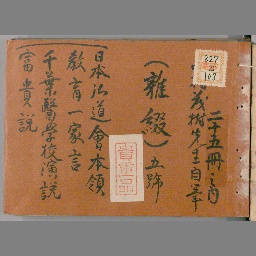 二十五冊之内
茂樹先生自筆
(雑綴)五號
日本弘道會本領
教育一家言
千葉醫学校演説
富貴説
貴重品
327
107